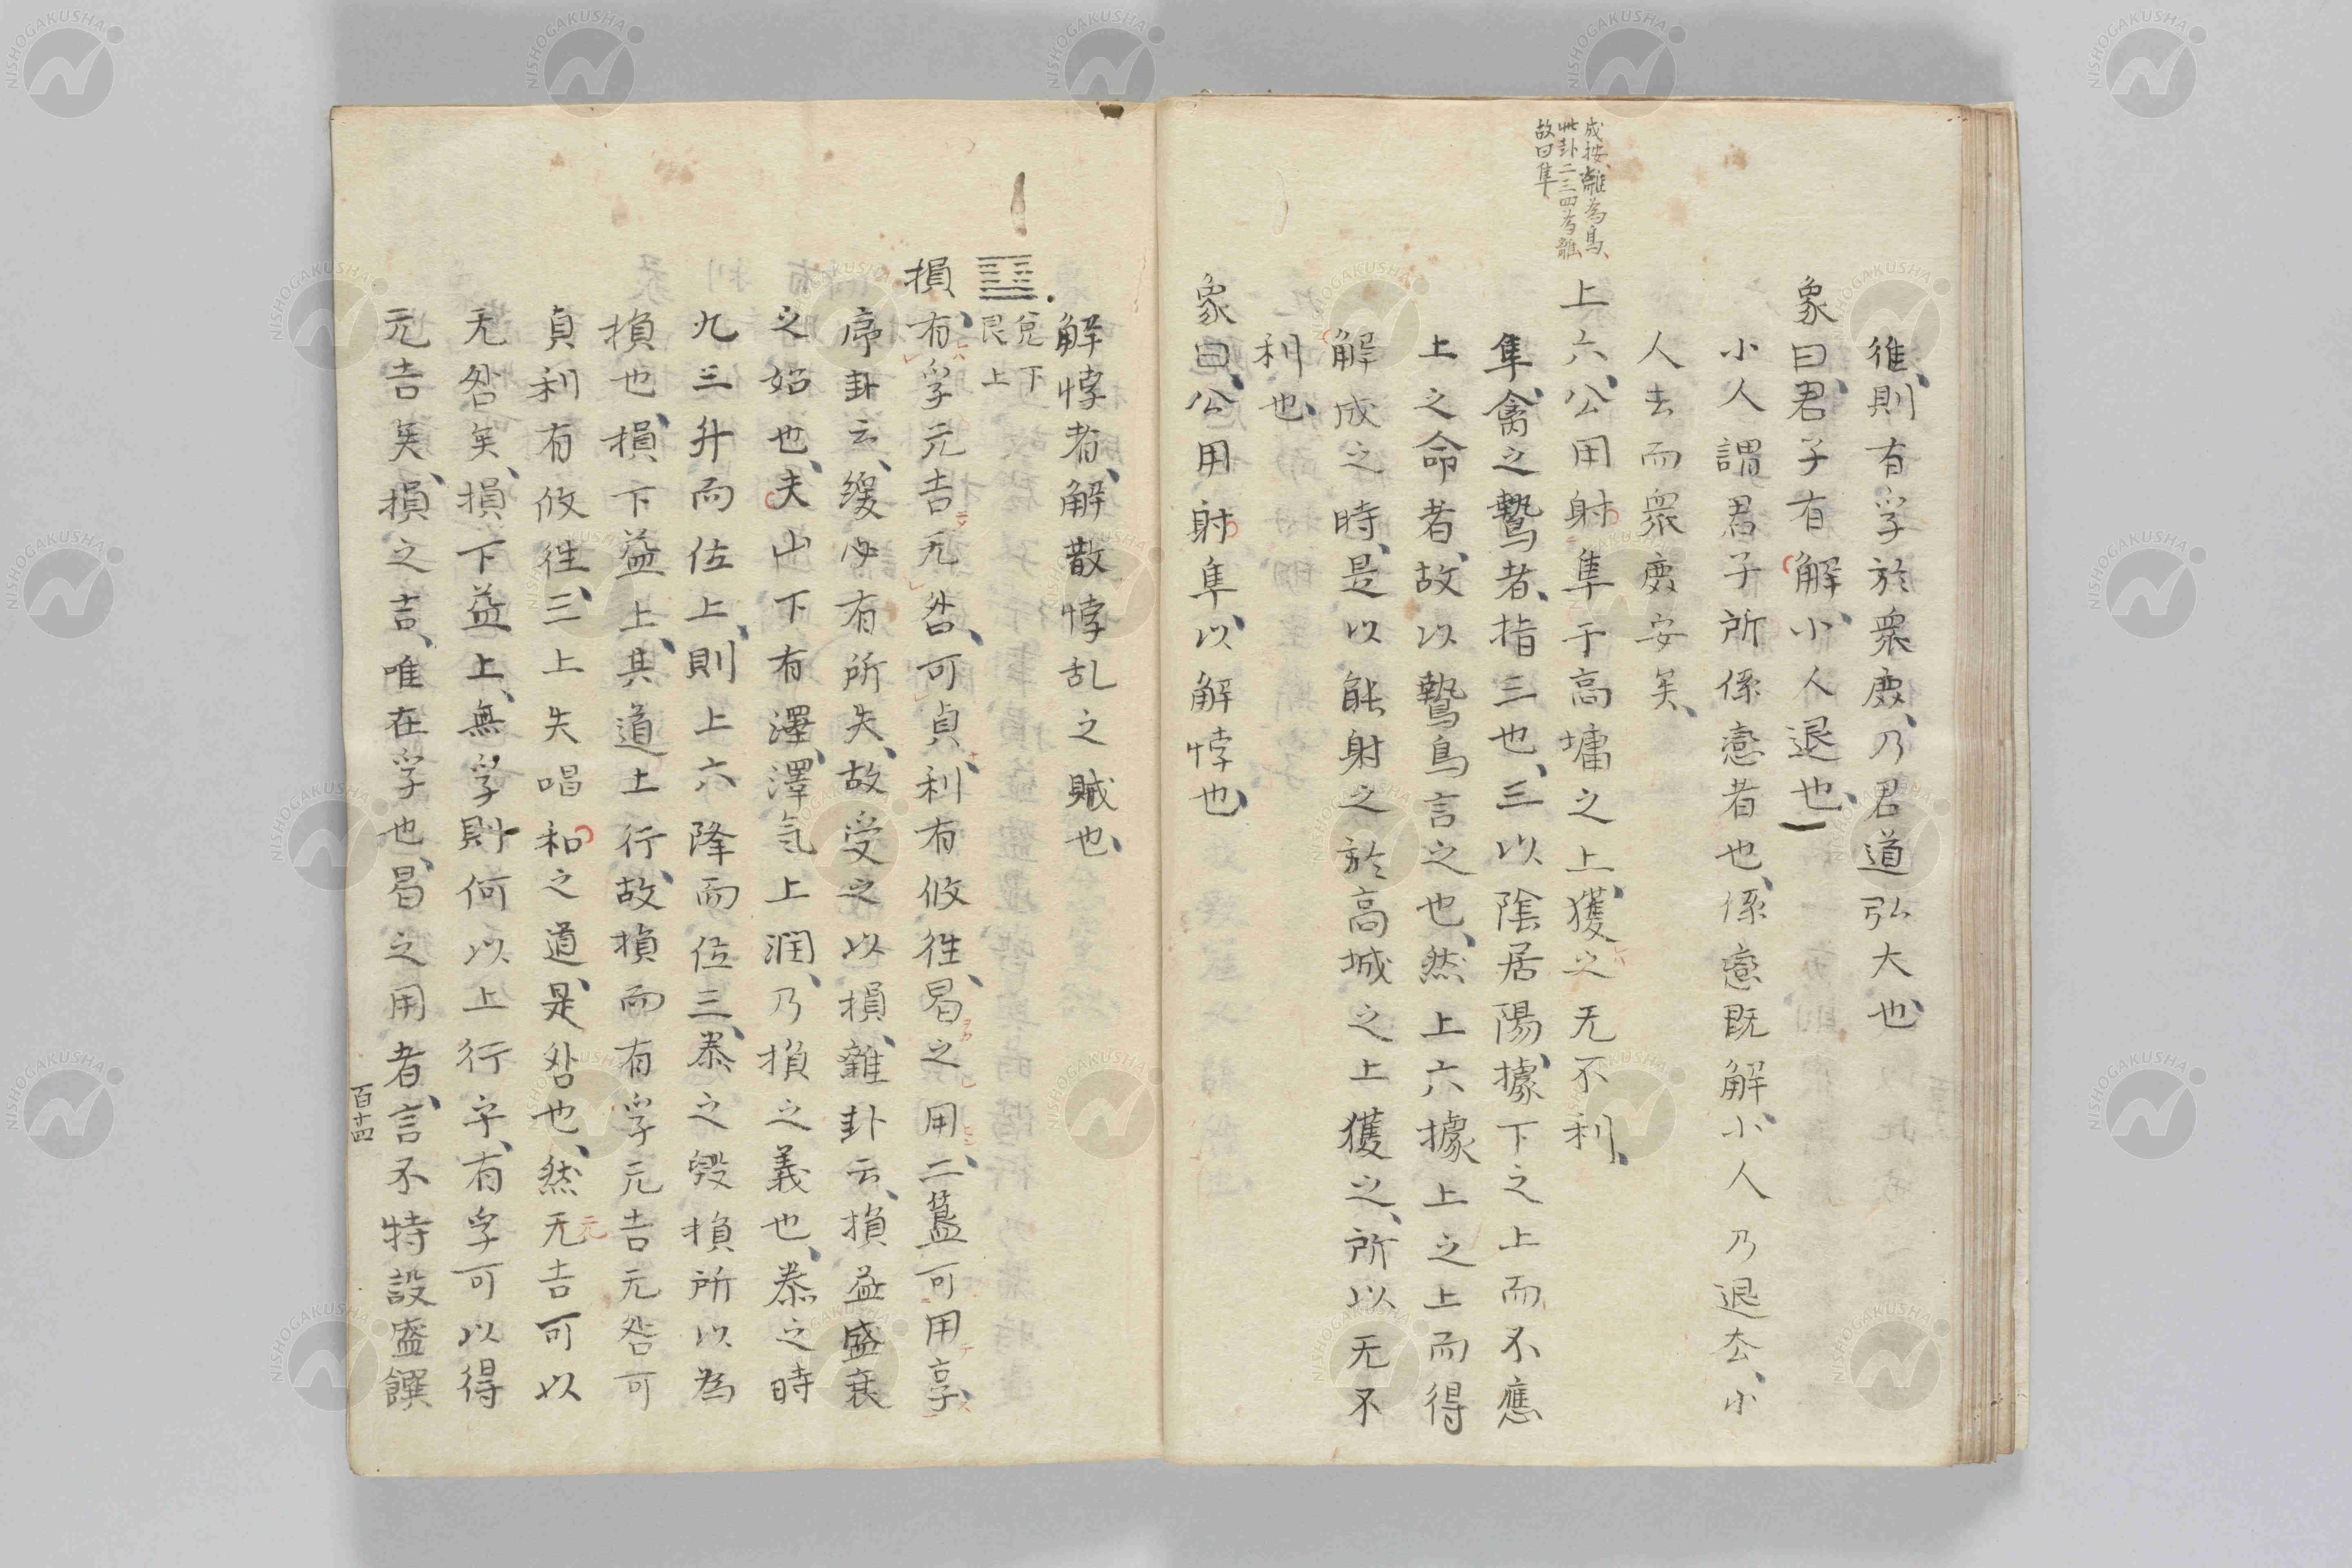 成按、離為鳥、
此卦二三四為離
故曰隼
徃、則有孚於衆庻、乃君道弘大也、
象曰、君子有解、小人退也、
小人謂君子所係戀者也、係戀既解、小人乃退去、小
人去而衆庻安矣、
上六、公用射隼于高墉之上、獲之无不利、
隼、禽之鷙者、指三也、三以陰居陽、據下之上而不應
上之命者、故以鷙鳥言之也、然上六據上之上而得
解成之時、是以能射之於高城之上獲之、所以无不
利也、
象曰、公用射隼、以解悖也、
解悖者、解散悖乱之賊也、
兌下
艮上
損、有孚元吉无咎、可貞、利有攸徃、曷之用、二簋可用享、
序卦云、緩必有所失、故受之以損、雜卦云、損益盛衰
之始也、夫山下有澤、澤氣上潤、乃損之義也、泰之時
九三升而位上、則上六降而位三、泰之毀損所以為
損也、損下益上、其道上行、故損而有孚元吉无咎可
貞利有攸徃、三上失唱和之道、是咎也、然无吉可以
元
无咎矣、損下益上、無孚則何以上行乎、有孚可以得
元吉矣、損之言、唯在孚也、曷之用者、言不特設盛饌
百十四